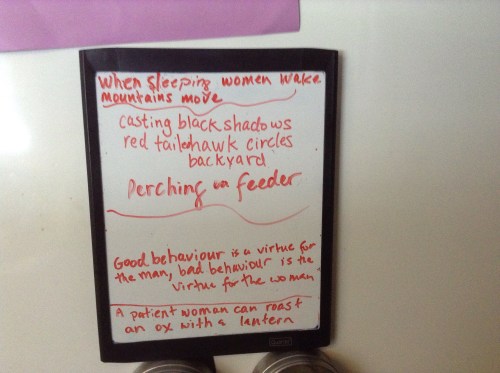 When Sleeping women wake
mountains move
casting black shadows
red tailed hawk circles
backyard
Perching on feeder
Good behaviour is a virtue for
the man, bad behaviour is the
virtue for the woman
A patient woman can roast
an ox with a lantern